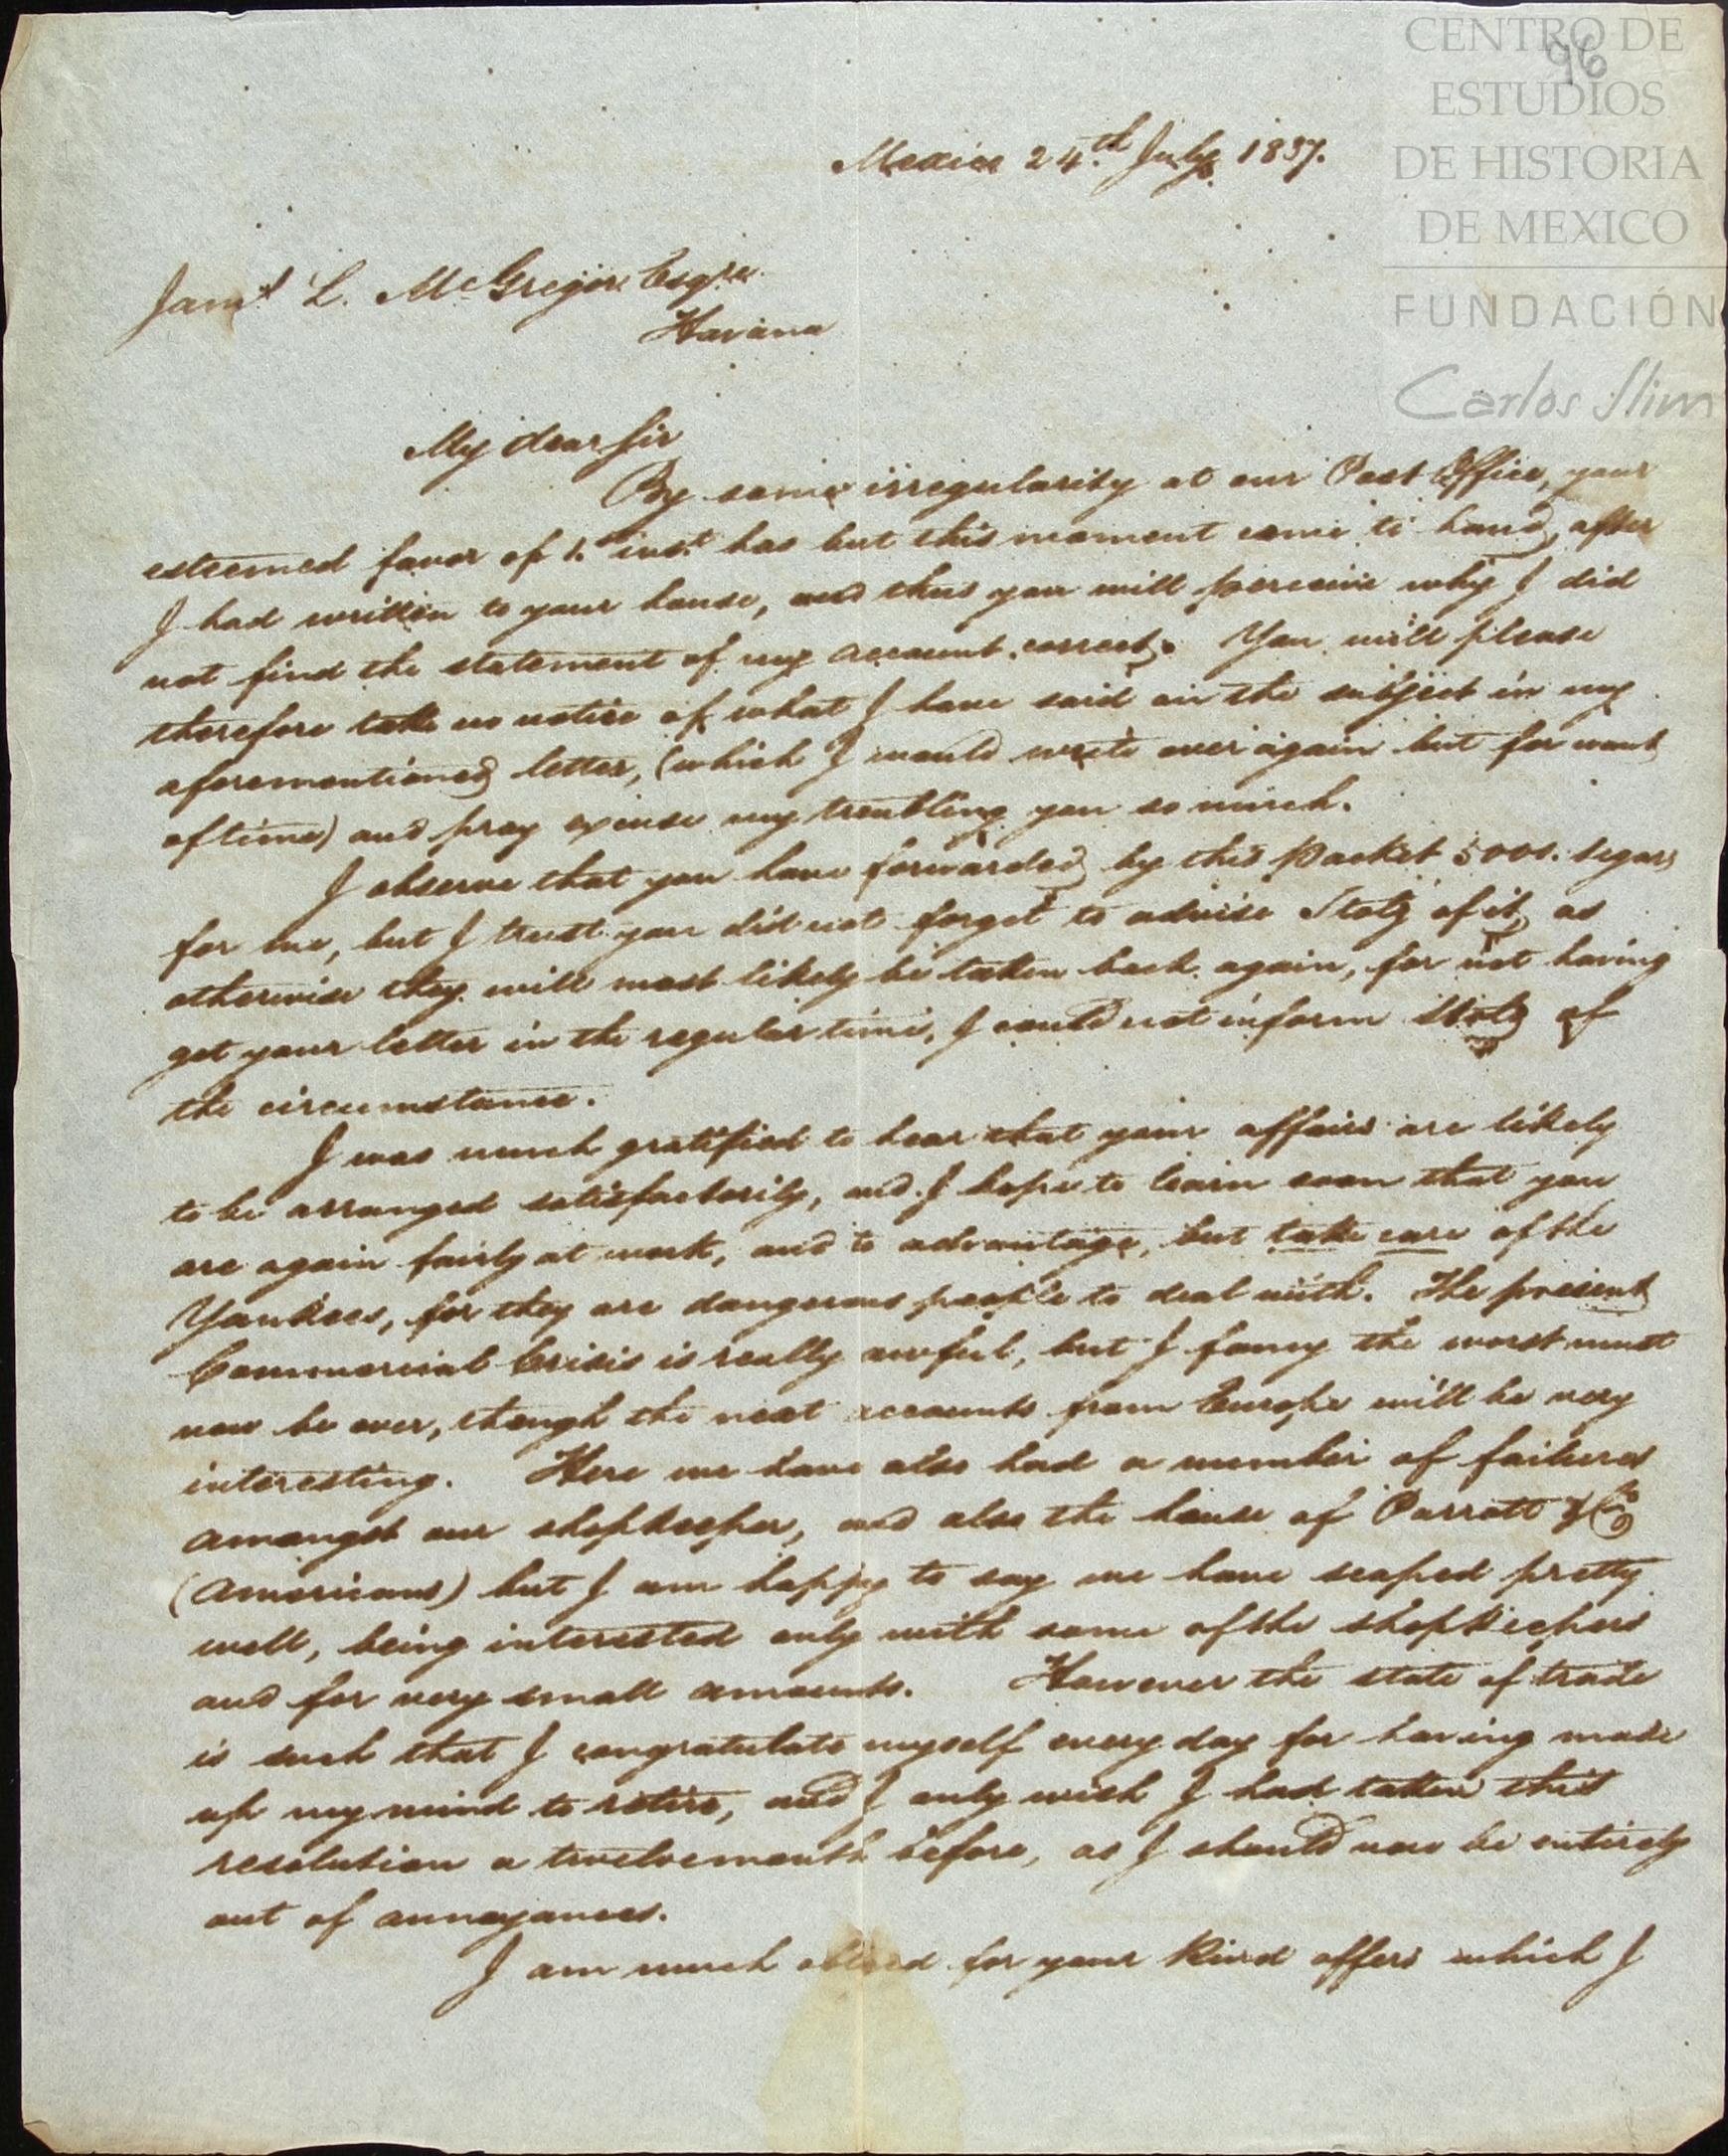 CENTRO DE
ESTUDIOS
DE HISTORIA
DE MEXICO
FUNDACIÓN
Carlos Slim
96
Mexico 24.th July 1837.
Jam.s L. McGregor Esqre.
Havana
My dear Sir
By some irregularity at our Post Office, your
esteemed favor of 1. inst. has but this moment come to hand, after
I had written to your house, and thus you will perceive why I did
not find the statement of my account correct. You will please
therefore take no notice of what I have said on the subject in my
aforementioned letter, (which I would write over again but for want
of time) and pray excuse my troubling you so much.
I observe that you have forwarded by this Packet 5000. segars
for me, but I trust you did not forget to advise Stolz of it, as
otherwise they will most likely be taken back again, for not having
got your letter in the regular time, I could not inform Stolz of
the circumstance.
I was much gratified to hear that your affairs are likely
to be arranged satisfactorily, and I hope to learn soon that you
are again fairly at work, and to advantage, but take care of the
Yankees, for they are dangerous people to deal with. The present
Commercial Crisis is really awful, but I fancy the worst must
now be over, though the next accounts from Europe will be very
interesting. Here we have also had a number of failures
amongst our shopkeeper, and also the house of Parrott & Co
(Americans) but I am happy to say we have scaped pretty
well, being interested only with some of the shopkeepers
and for very small amounts. However the state of trade
is such that I congratulate myself every day for having made
up my mind to retire, and I only wish I had taken this
resolution a twelvemonth before, as I should now be entirely
out of annoyances.
I am much obliged for your kind offers which I